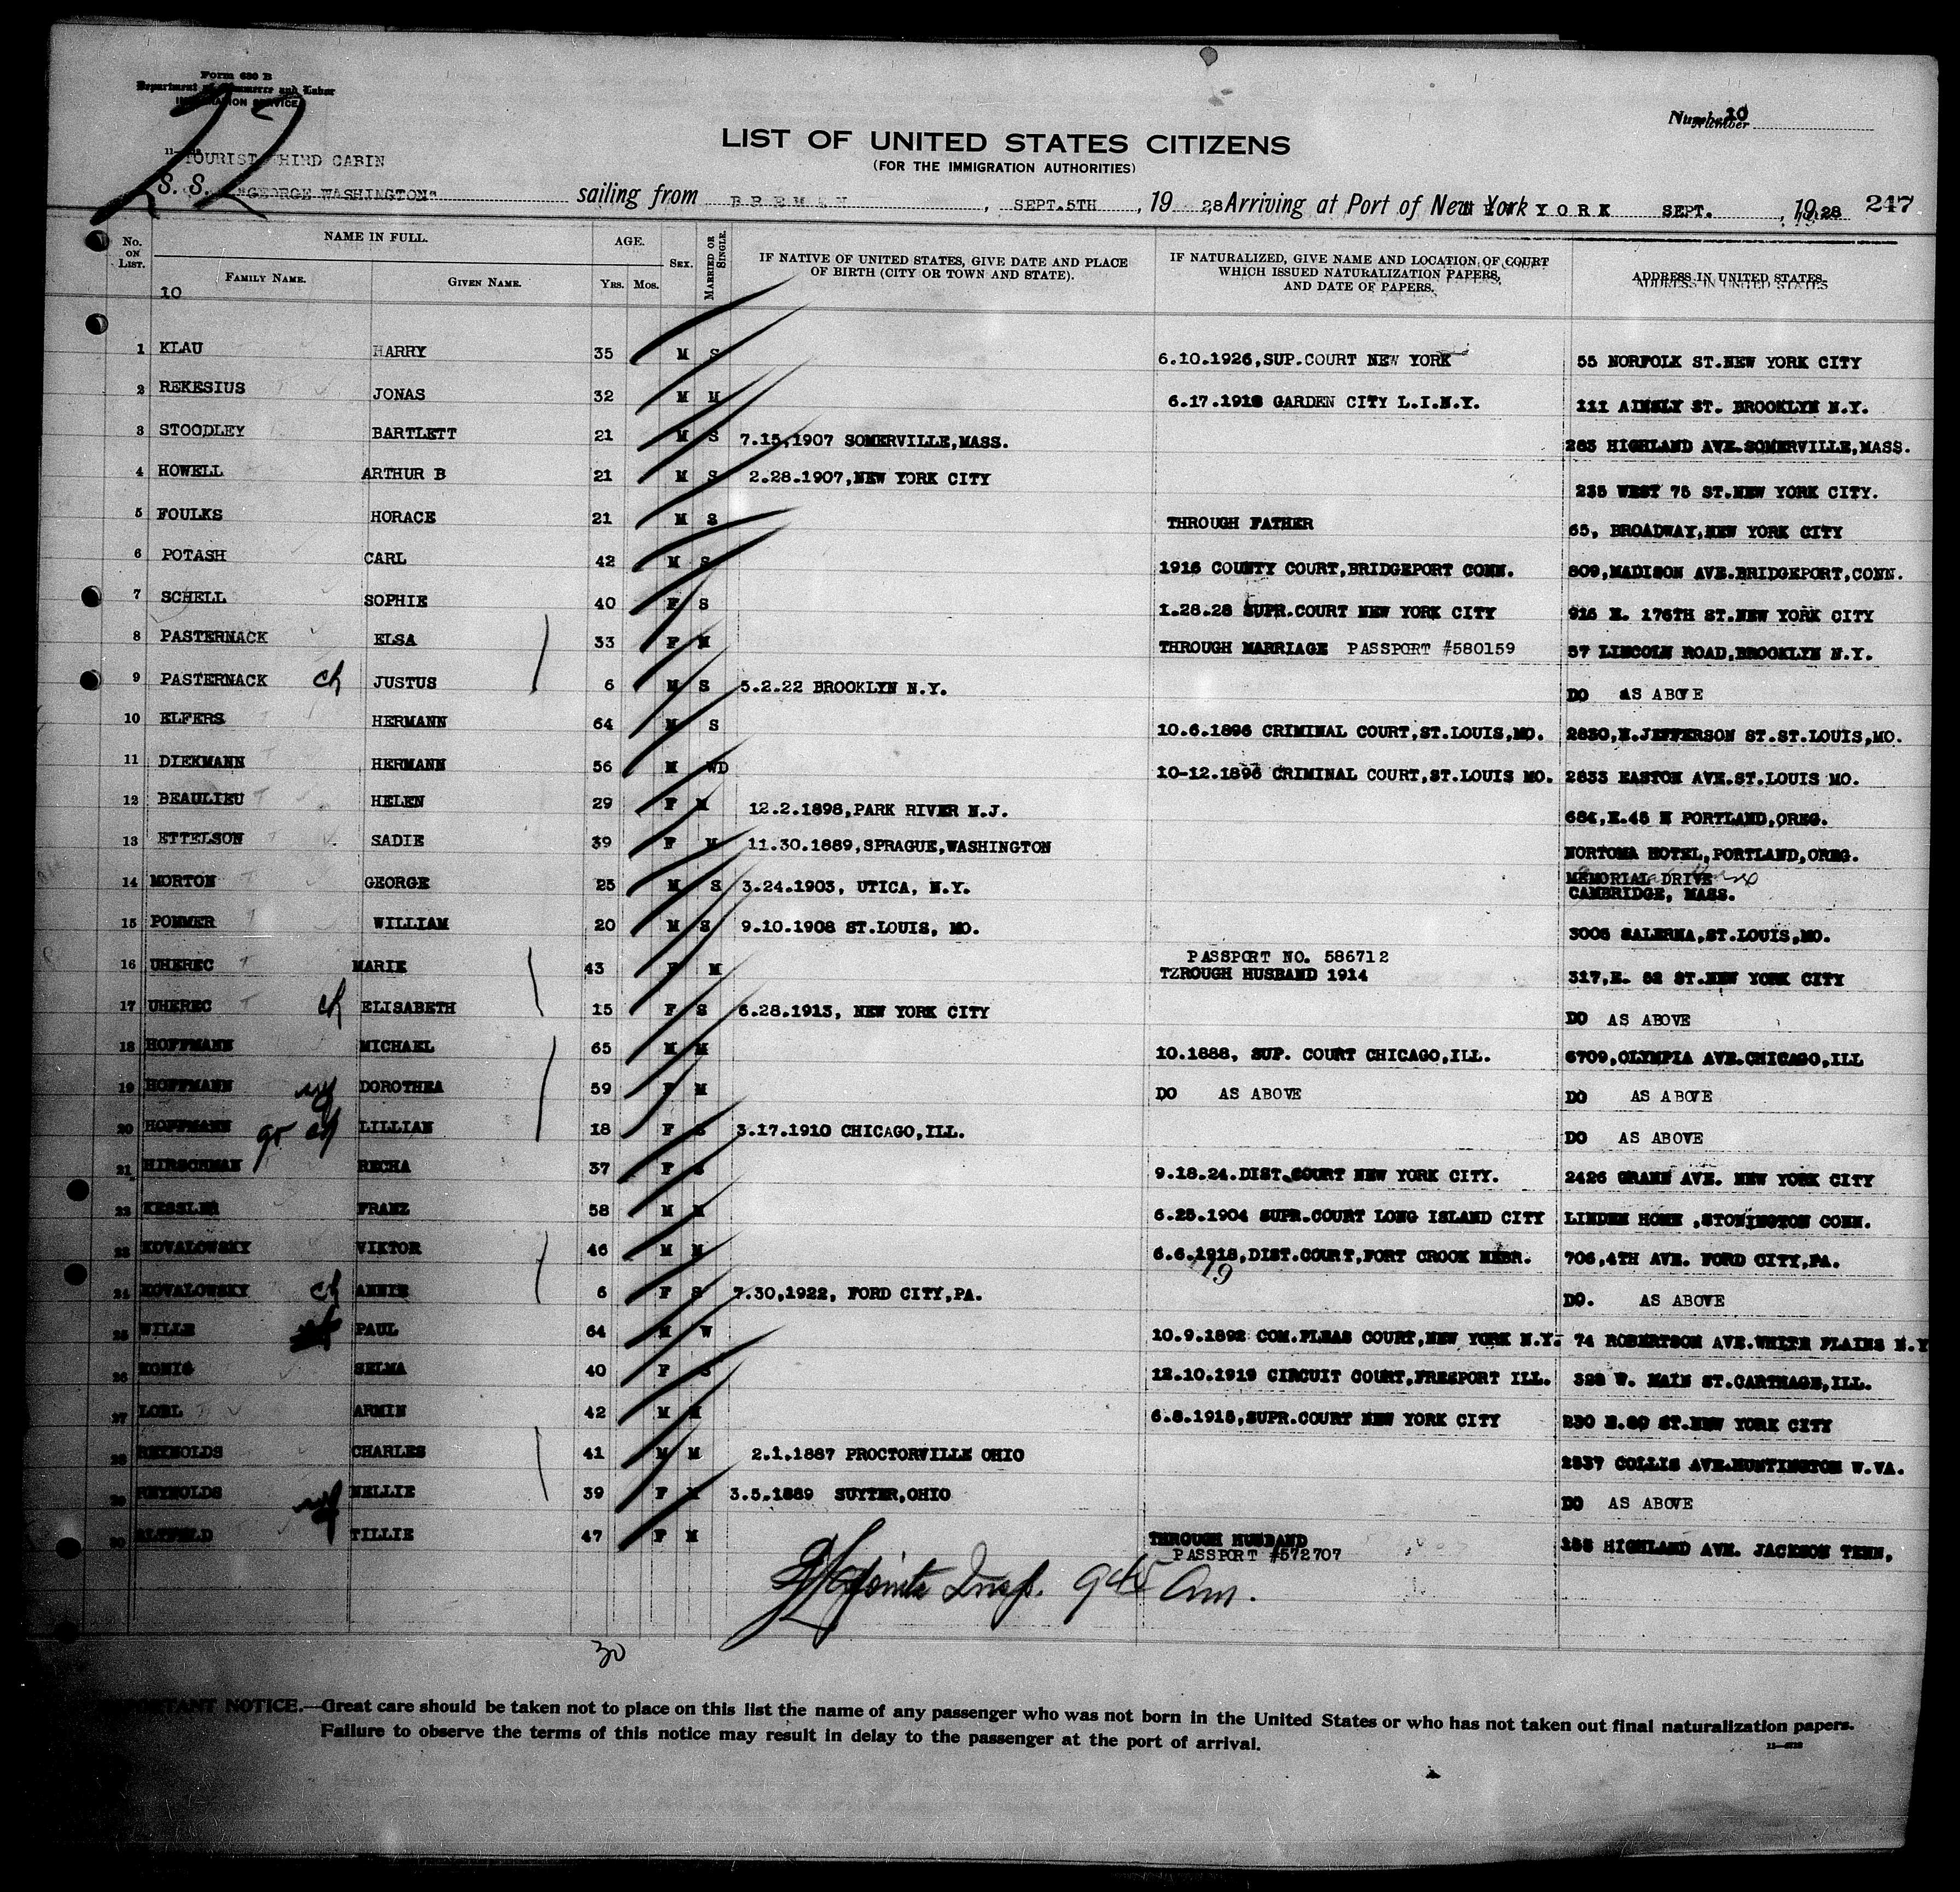 Form 630 B
Department of Commerce and Labor
IMMIGRATION SERVICE
Number 10
LIST OF UNITED STATES CITIZENS
(FOR THE IMMIGRATION AUTHORITIES)
TOURIST THIRD CABIN
S. S. "GEORGE WASHINGTON" sailing from BREMEN, SEPT.5TH, 1928 Arriving at Port of New York YORK SEPT. , 1928 247
No. ON LIST. NAME IN FULL. FAMILY NAME. GIVEN NAME. AGE. Yrs. Mos. SEX. MARRIED OR SINGLE. IF NATIVE OF UNITED STATES, GIVE DATE AND PLACE OF BIRTH (CITY OR TOWN AND STATE). IF NATURALIZED, GIVE NAME AND LOCATION OF COURT WHICH ISSUED NATURALIZATION PAPERS, AND DATE OF PAPERS. ADDRESS IN UNITED STATES
10
1 KLAU HARRY 35 M S 6.10.1926,SUP.COURT NEW YORK 55 NORFOLK ST.NEW YORK CITY
2 REKESIUS JONAS 32 M M 6.17.1918 GARDEN CITY L.I.N.Y. 111 AINSLY ST. BROOKLYN N.Y.
3 STOODLEY BARTLETT 21 M S 7.15,1907 SOMERVILLE,MASS. 283 HIGHLAND AVE.SOMERVILLE,MASS.
4 HOWELL ARTHUR B 21 M S 2.28.1907,NEW YORK CITY 235 WEST 75 ST.NEW YORK CITY.
5 FOULKS HORACE 21 M S THROUGH FATHER 65, BROADWAY,NEW YORK CITY
6 POTASH CARL 42 M S 1916 COUNTY COURT,BRIDGEPORT CONN. 809,MADISON AVE.BRIDGEPORT,CONN.
7 SCHELL SOPHIE 40 F S 1.28.28 SUPR.COURT NEW YORK CITY 916 E. 176TH ST.NEW YORK CITY
8 PASTERNACK ELSA 33 F M THROUGH MARRIAGE PASSPORT #580159 57 LINCOLN ROAD,BROOKLYN N.Y.
9 PASTERNACK ch JUSTUS 6 M S 5.2.22 BROOKLYN N.Y. DO AS ABOVE
10 ELFERS HERMANN 64 M S 10.6.1896 CRIMINAL COURT,ST.LOUIS,MO. 2830,N.JEFFERSON ST.ST.LOUIS,MO.
11 DIEKMANN HERMANN 56 M WD 10-12.1896 CRIMINAL COURT,ST.LOUIS MO. 2833 EASTON AVE.ST.LOUIS MO.
12 BEAULIEU HELEN 29 F M 12.2.1898,PARK RIVER N.J. 684,E.45 N PORTLAND,OREG.
13 ETTELSON SADIE 39 F M 11.30.1889,SPRAGUE,WASHINGTON NORTONA HOTEL,PORTLAND,OREG.
14 MORTON GEORGE 25 M S 3.24.1903, UTICA, N.Y. MEMORIAL DRIVE
CAMBRIDGE, MASS.
15 POMMER WILLIAM 20 M S 9.10.1908 ST.LOUIS, MO. 3005 SALERNA,ST.LOUIS,MO.
16 UHEREC MARIE 43 F M PASSPORT NO. 586712
TZROUGH HUSBAND 1914 317,E. 82 ST.NEW YORK CITY
17 UHEREC ch ELISABETH 15 F S 6.28.1913, NEW YORK CITY DO AS ABOVE
18 HOFFMANN MICHAEL 65 M M 10.1888, SUP. COURT CHICAGO,ILL. 6709,OLYMPIA AVE.CHICAGO,ILL
19 HOFFMANN wf DOROTHEA 59 F M DO AS ABOVE DO AS ABOVE
20 HOFFMANN gr ch LILLIAN 18 F S 3.17.1910 CHICAGO,ILL. DO AS ABOVE
21 HIRSCHMAN RECHA 37 F S 9.18.24.DIST.COURT NEW YORK CITY. 2426 GRAND AVE. NEW YORK CITY
22 KESSLER FRANZ 58 M M 6.25.1904 SUPR.COURT LONG ISLAND CITY LINDEN HOME ,STONINGTON CONN.
23 KOVALOWSKY VIKTOR 46 M M 6.6.1918,DIST.COURT,FORT CROOK NEBR. 706,4TH AVE. FORD CITY,PA.
19
24 KOVALOWSKY ch ANNIE 6 F S 7.30,1922, FORD CITY,PA. DO. AS ABOVE
25 WILLE PAUL 64 M W 10.9.1892 COM.PLEAS COURT,NEW YORK N.Y. 74 ROBERTSON AVE.WHITE PLAINS N.Y
26 KONIG SELMA 40 F S 12.10.1919 CIRCUIT COURT,FREEPORT ILL. 328 W. MAIN ST.CARTHAGE,ILL.
27 LOBL ARMIN 42 M M 6.8.1915,SUPR.COURT NEW YORK CITY 230 E.80 ST.NEW YORK CITY
28 REYNOLDS CHARLES 41 M M 2.1.1887 PROCTORVILLE OHIO 2537 COLLIS AVE.HUNTINGTON W.VA.
29 REYNOLDS wf NELLIE 39 F M 3.5.1889 SUYTER,OHIO DO AS ABOVE
30 ALTFELD TILLIE 47 F M THROUGH HUSBAND
PASSPORT #572707 155 HIGHLAND AVE. JACKSON TENN,
Insp.
30
IMPORTANT NOTICE.—Great care should be taken not to place on this list the name of any passenger who was not born in the United States or who has not taken out final naturalization papers.
Failure to observe the terms of this notice may result in delay to the passenger at the port of arrival.